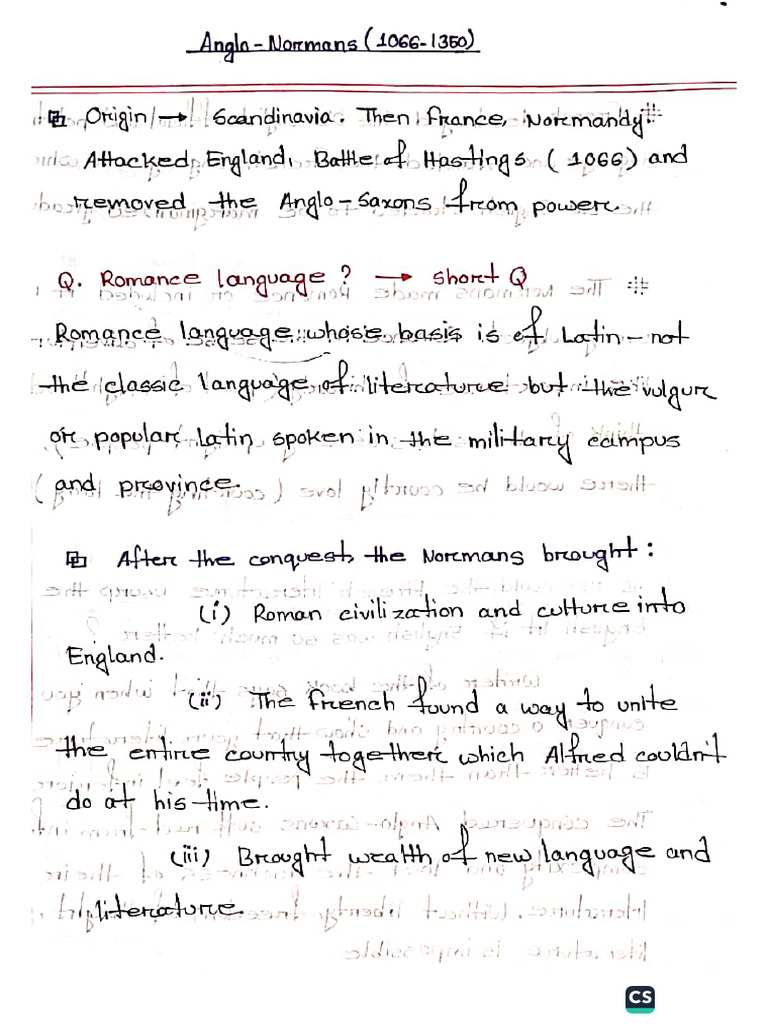 Anglo-Normans (1066-1350)
Origin → Scandinavia. Then France, Normandy.
Attacked England, Battle of Hastings (1066) and
removed the Anglo-Saxons from power.
Q. Romance language? → short Q
Romance language whose basis is of Latin - not
the classic language of literature but the vulgur
or popular Latin spoken in the military campus
and province.
After the conquest, the Normans brought:
(i) Roman civilization and culture into
England.
(ii) The French found a way to unite
the entire country together which Alfred couldn't
do at his time.
(iii) Brought wealth of new language and
literature.
CS